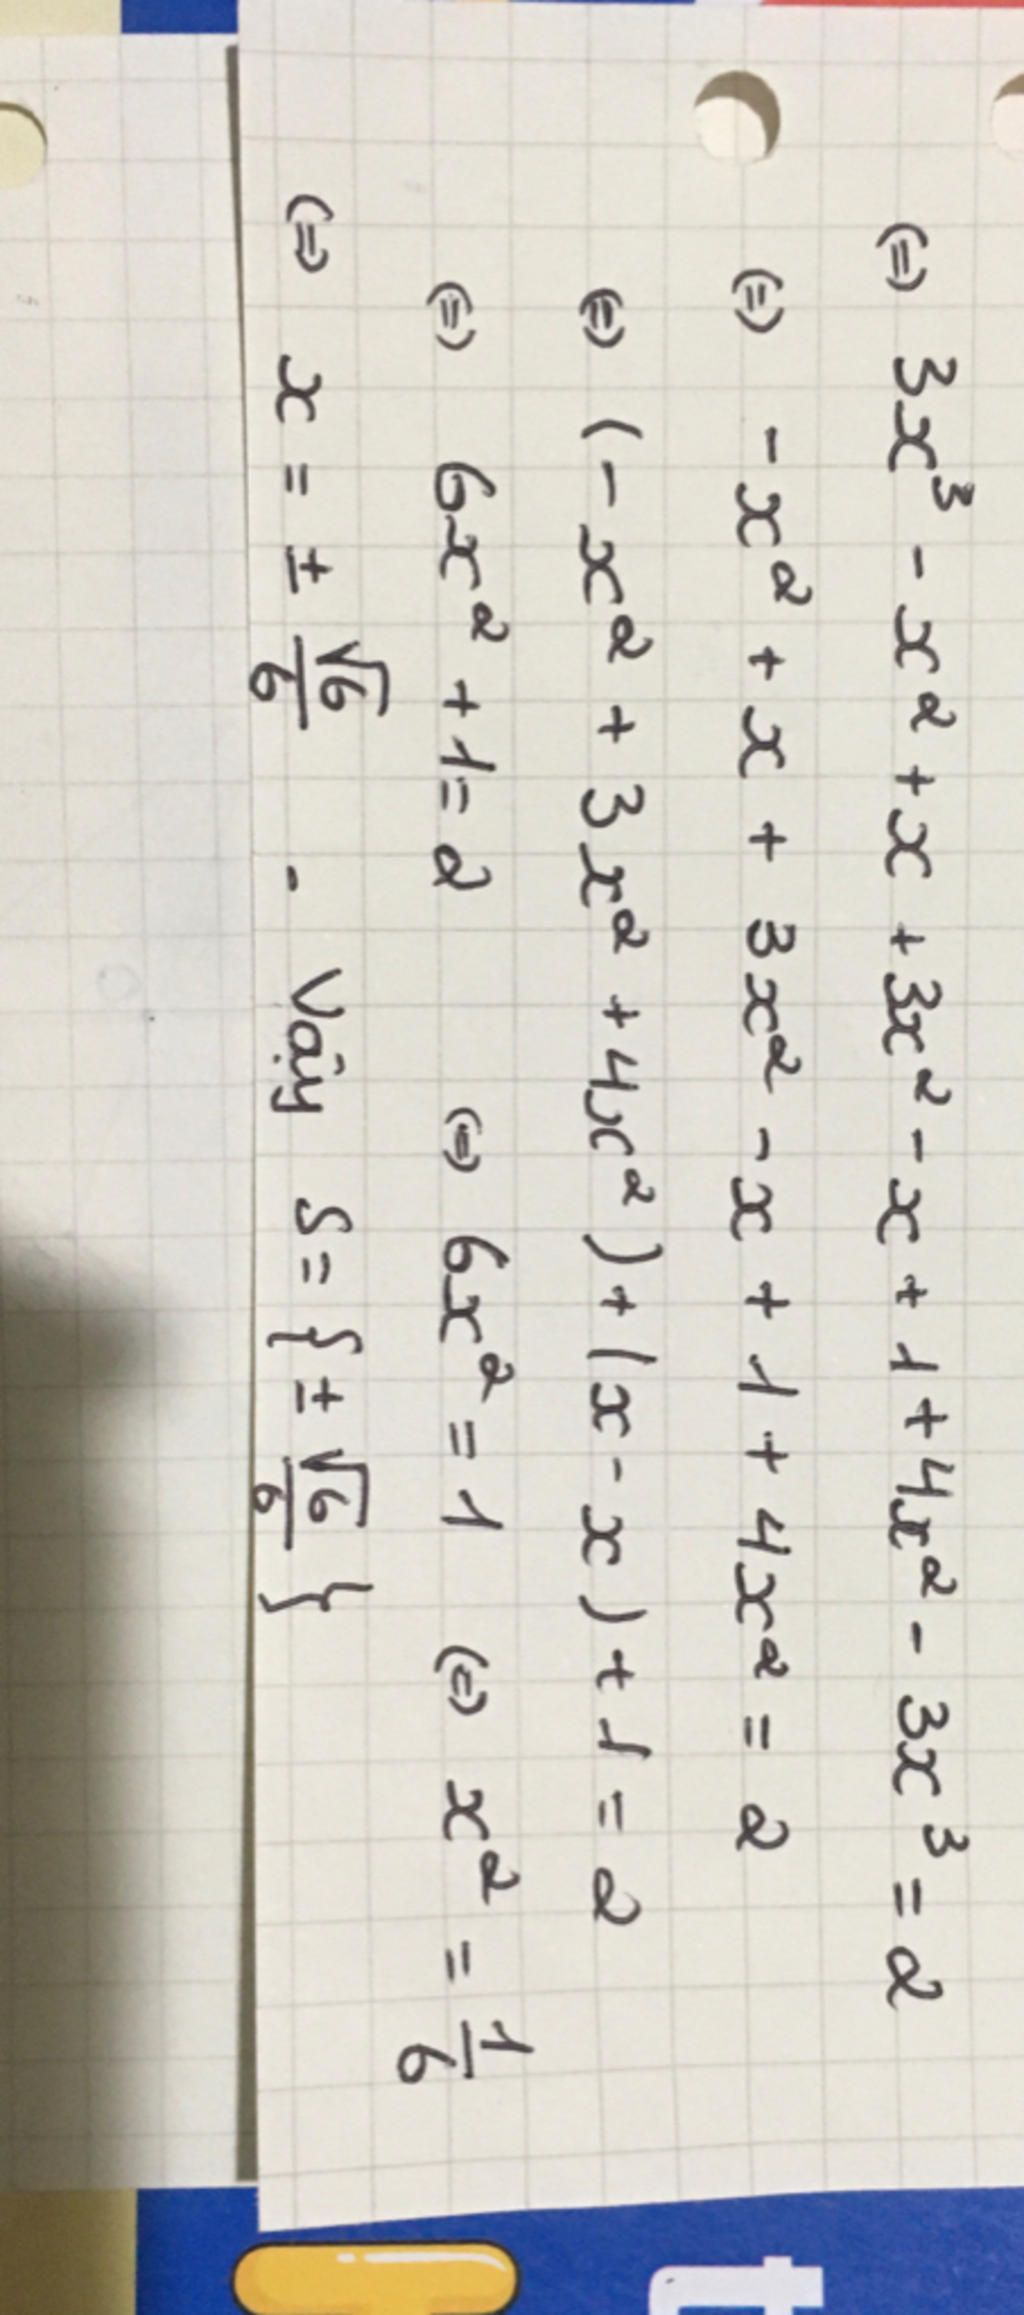 ⇔ 3x³ - x² + x + 3x² - x + 1 + 4x² - 3x³ = 2
⇔ -x² + x + 3x² - x + 1 + 4x² = 2
⇔ (-x² + 3x² + 4x²) + (x - x) + 1 = 2
⇔ 6x² + 1 = 2 ⇔ 6x² = 1 ⇔ x² = 1/6
⇔ x = ± √6/6 - Vậy S = { ± √6/6 }
t